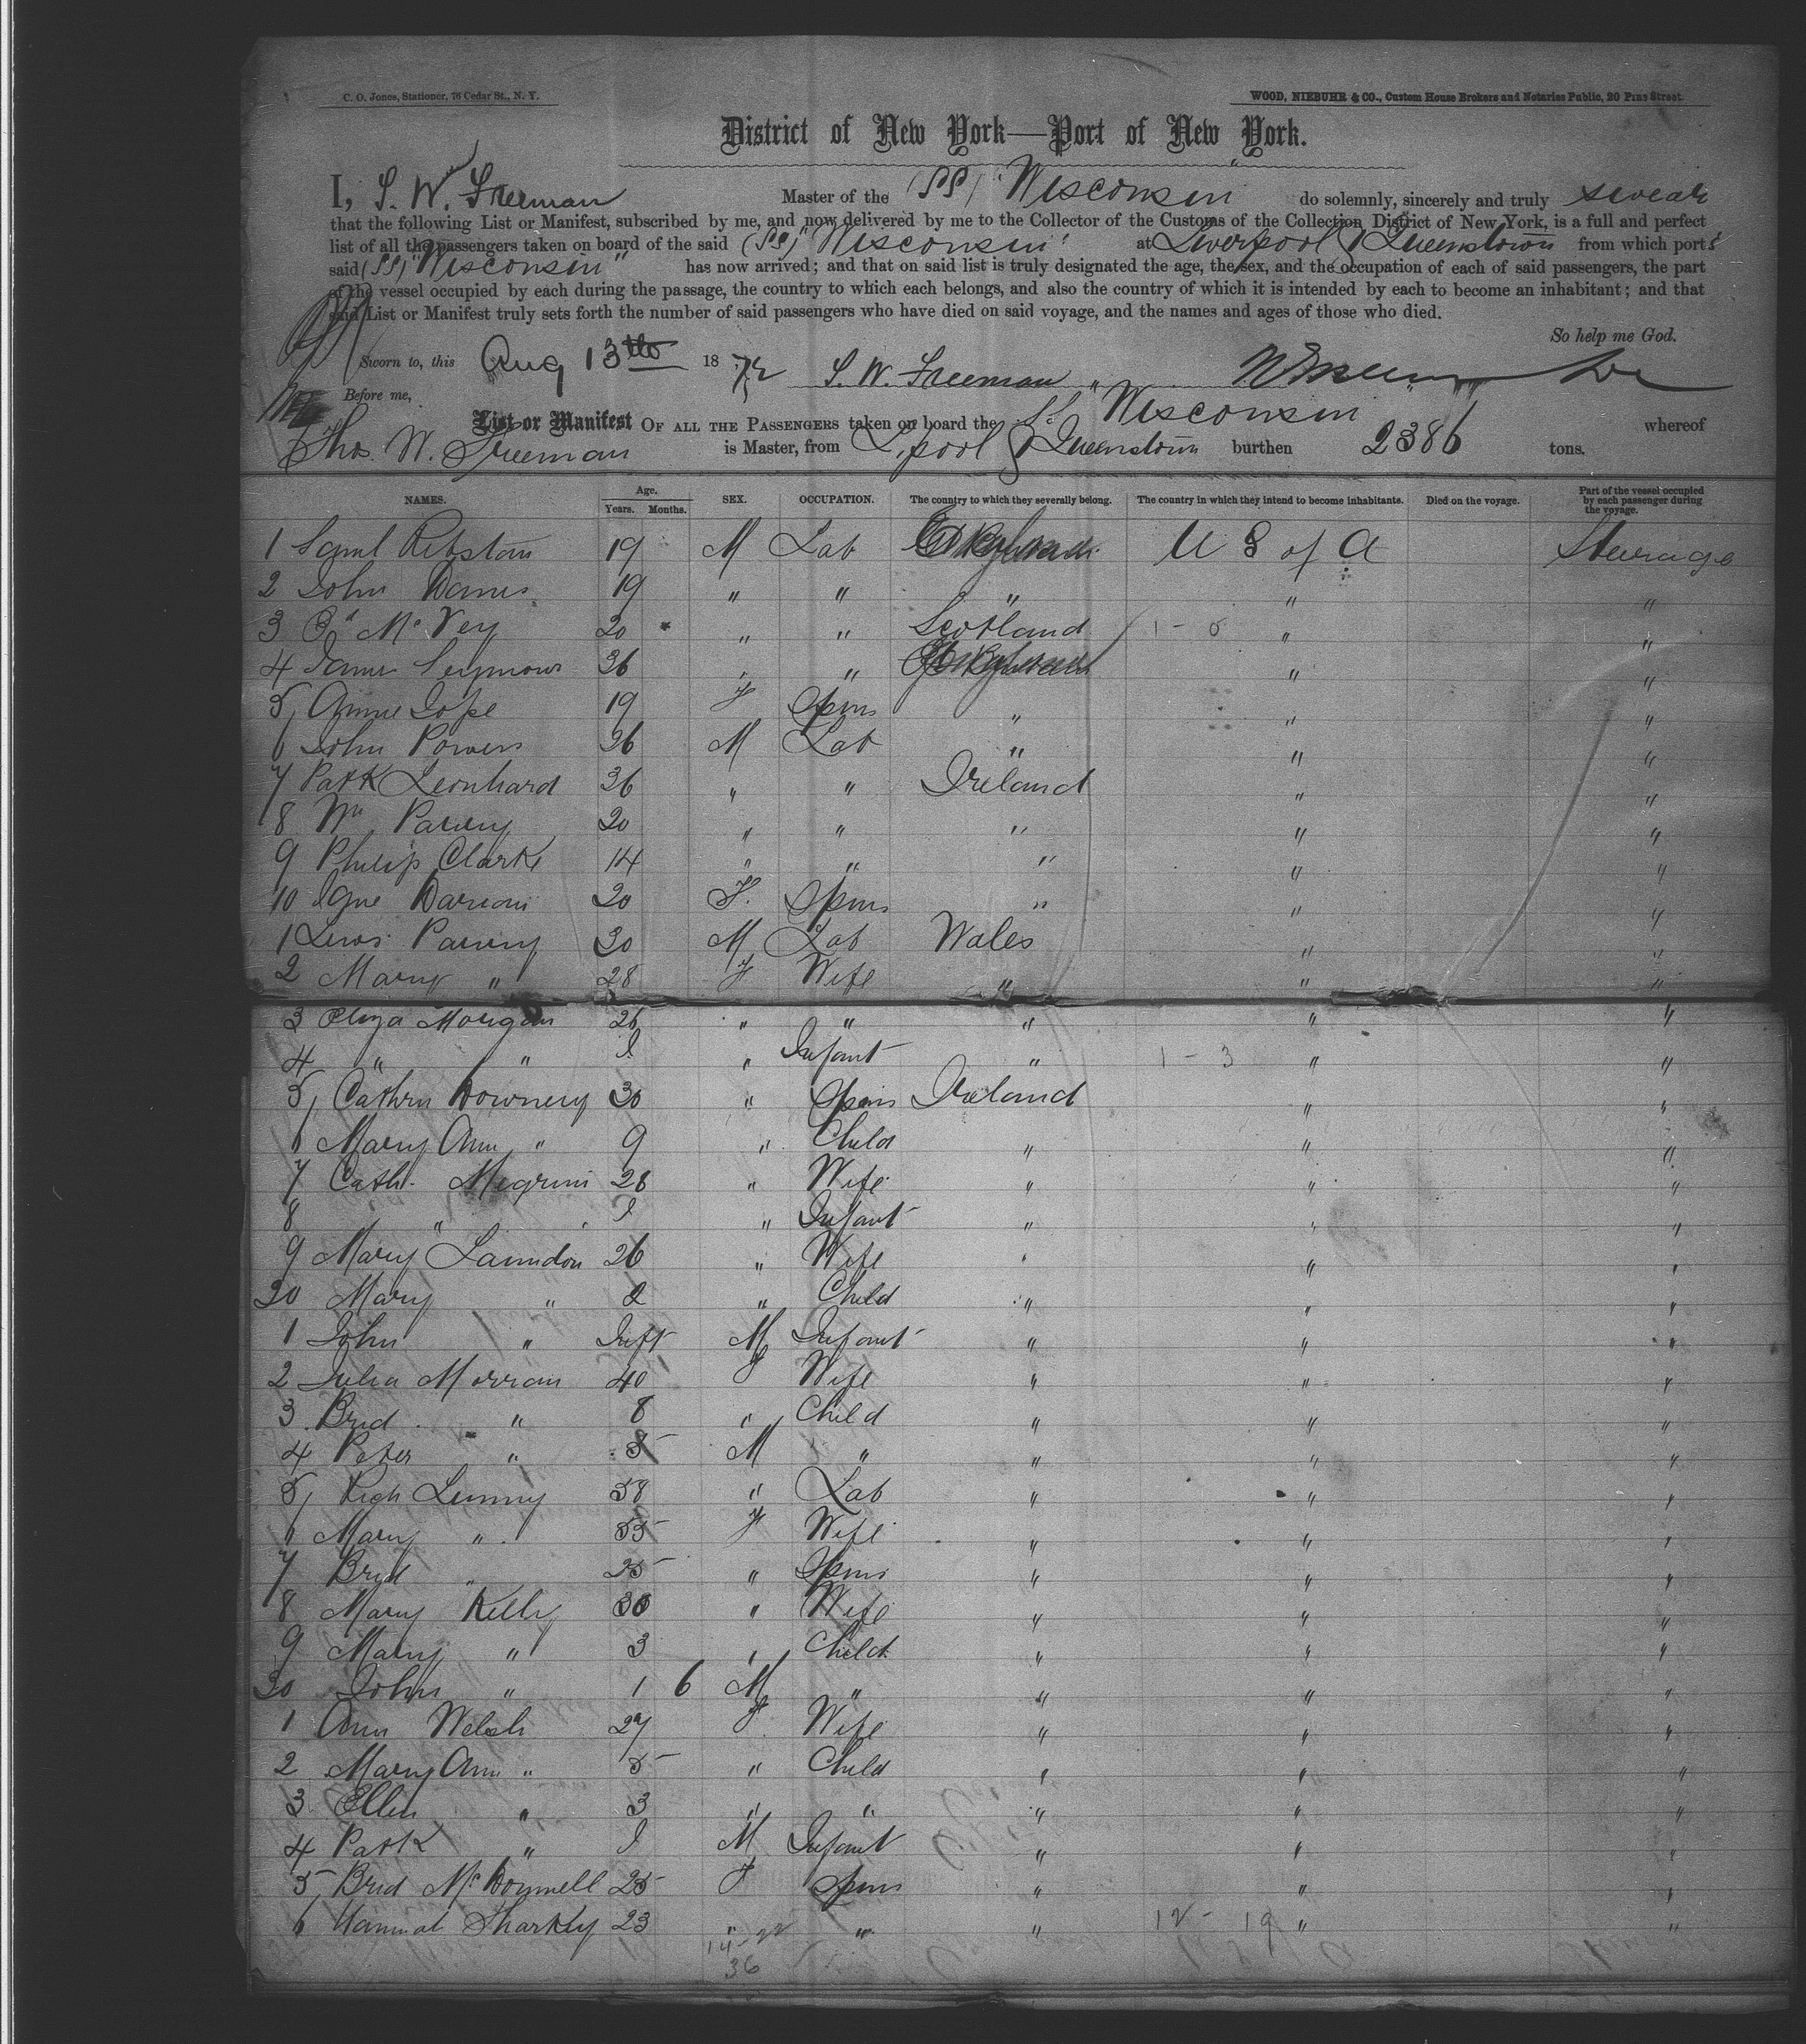 C. O. Jones, Stationer, 76 Cedar St., N. Y.
WOOD, NIEBUHR & CO., Custom House Brokers and Notaries Public, 20 Pine Street.
District of New York—Port of New York.
I, T. W. Freeman Master of the (SS) "Wisconsin" do solemnly, sincerely and truly swear
that the following List or Manifest, subscribed by me, and now delivered by me to the Collector of the Customs of the Collection District of New York, is a full and perfect
list of all the passengers taken on board of the said (SS) "Wisconsin" at Liverpool & Queenstown from which ports
said (SS) "Wisconsin" has now arrived; and that on said list is truly designated the age, the sex, and the occupation of each of said passengers, the part
of the vessel occupied by each during the passage, the country to which each belongs, and also the country of which it is intended by each to become an inhabitant; and that
said List or Manifest truly sets forth the number of said passengers who have died on said voyage, and the names and ages of those who died.
So help me God.
Sworn to, this Aug 13th 1872 T. W. Freeman
Before me,
List or Manifest OF ALL THE PASSENGERS taken on board the SS Wisconsin whereof
Thos. W. Freeman is Master, from L,pool & Queenstown burthen 2386 tons.
NAMES. Age. Years. Months. SEX. OCCUPATION. The country to which they severally belong. The country in which they intend to become inhabitants. Died on the voyage. Part of the vessel occupied by each passenger during the voyage.
1 Saml 19 M Lab England U S of A Steerage
2 John 19 " " " " "
3 McVey 20 " " Scotland 1 - 0 " "
4 James Seymour 36 " " England " "
5, Annie 19 F Spins " " "
6 John Powers 26 M Lab " " "
7 Patk Leonhard 36 " " Ireland " "
8 Wm 20 " " " " "
9 Philip Clarke 14 " " " " "
10 20 F. Spins " " "
1 Lewis 30 M Lab Wales " "
2 Mary " 28 F Wife " " "
3 Eliza Morgan 26 " " " " "
4 " " " Infant " 1 - 3 " "
5, Cathrn Downery 30 " Spins Ireland " "
6 Mary Ann " 9 " Child " " "
7 Cath. 28 " Wife " " "
8 " " " Infant " " "
9 Mary 26 " Wife " " "
20 Mary " 2 " Child " " "
1 John " Inft M Infant " " "
2 Julia Morran 40 F Wife " " "
3 Brid " 8 " Child " " "
4 Peter " 5 M " " " "
5, Lunny 58 " Lab " " "
6 Mary " 55 F Wife " " "
7 Brid " 25 " Spins " " "
8 Mary Kelly 30 " Wife " " "
9 Mary " 3 " Child " " "
30 John " 1 6 M " " " "
1 Ann Welsh 27 F Wife " " "
2 Mary Ann " 5 " Child " " "
3 Ellen " 3 " " " " "
4 Patk " M Infant " " "
5, Brid McDonnell 25 F Spins " " "
6 Hannah Sharkey 23 " " " 12 - 19 " "
14 - 22
36